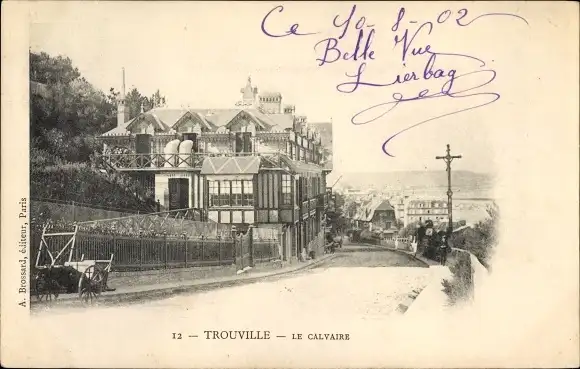 Ce 10-8-02
Belle Vue
A. Brossard, éditeur, Paris
12 - TROUVILLE - LE CALVAIRE